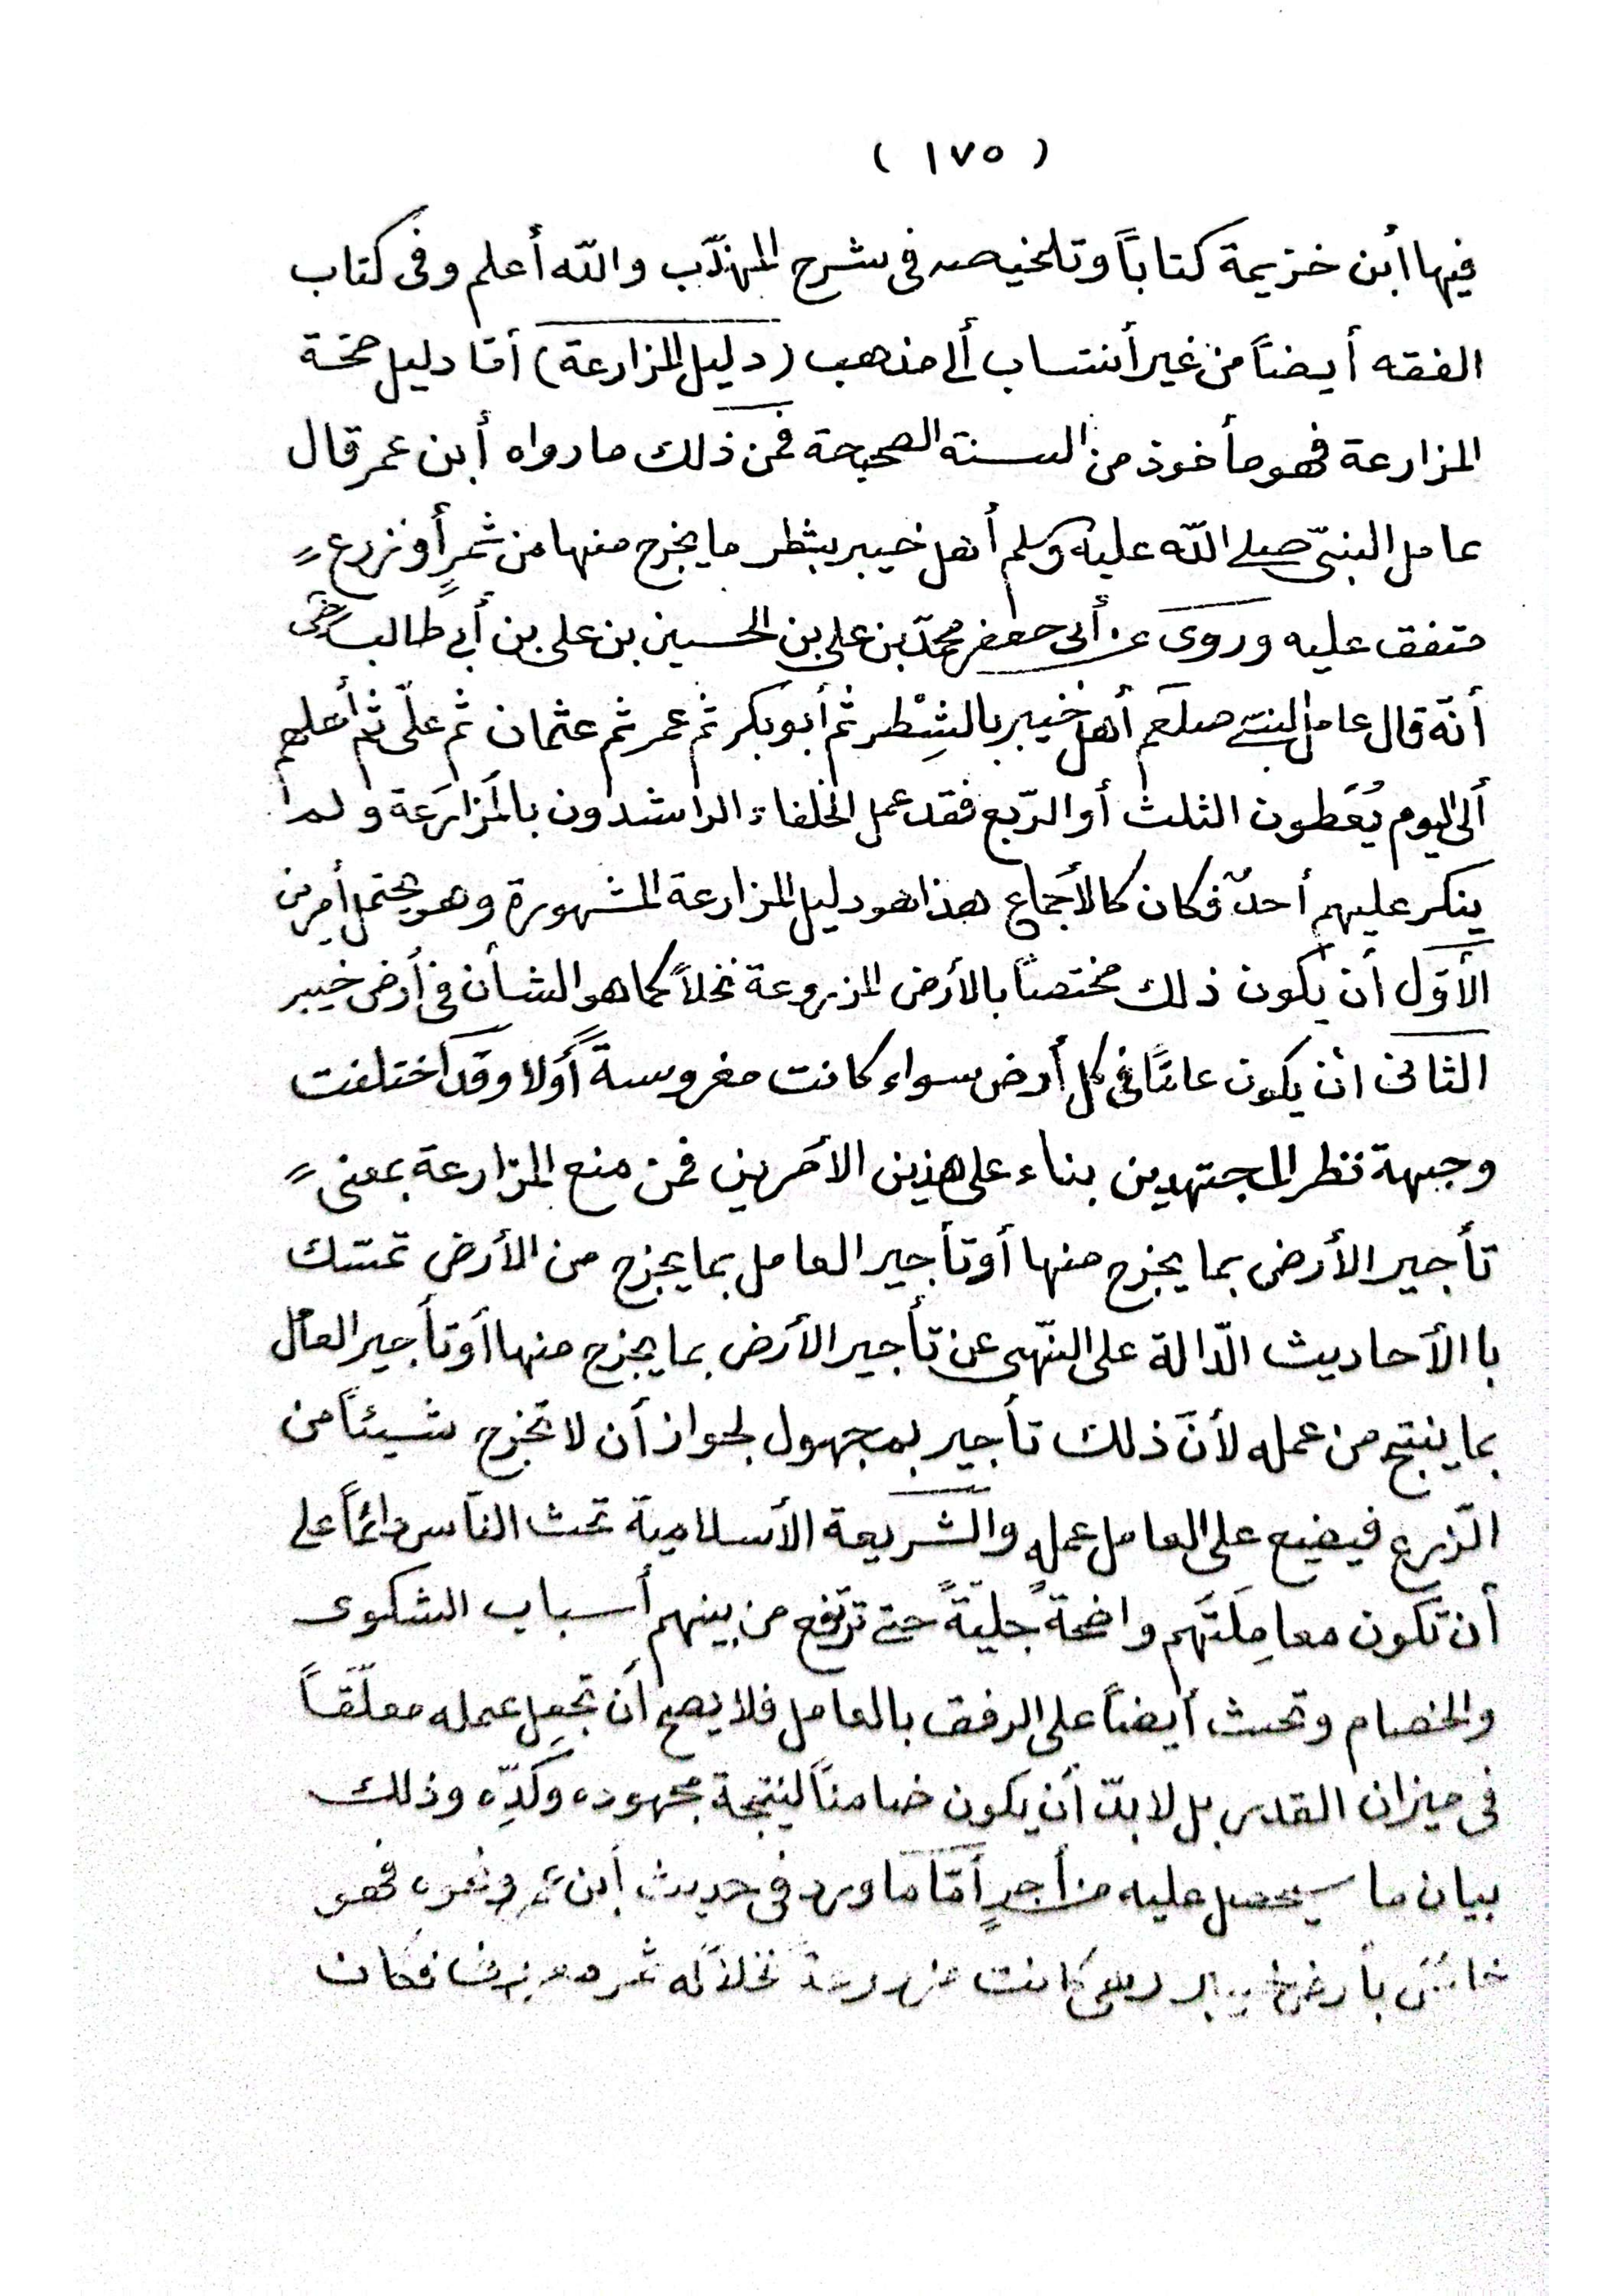 ( ١٧٥ )
فيها أبن خزيمة كتاباً وتلخيصه فى شرح المهذّب والله أعلم وفى كتاب
الفقه أيضاً من غير أنتساب ألى مذهب (دليل المزارعة) أمّا دليل صحّة
المزارعة فهو مأخوذ من السنة الصحيحة فمن ذلك ما رواه أبن عمر قال
عامل النبىّ صلى الله عليه وسلم أهل خيبر بشطر ما يخرج منها من ثمرٍ أو زرع
متفق عليه وروى عن أبى جعفر محمّد بن على بن الحسين بن على بن أبى طالب رضى
أنّه قال عامل النبىّ صلعم أهل خيبر بالشِطْر ثم أبو بكر ثم عمر ثم عثمان ثم علىّ ثم أهلهم
ألى اليوم يُعْطون الثلث أو الرّبع فقد عمل الخلفاء الراشدون بالمزارَعة ولم
ينكر عليهم أحدٌ فكان كالأجماع هذا هو دليل المزارعة المشهورة وهو يحتمل أمرين
الأوّل أن يكون ذلك مختصاً بالأرض المزروعة نخلاً كما هو الشأن فى أرض خيبر
الثانى ان يكون عامّاً فى كل أرض سواء كانت مغروسةً أولا وقد أختلفت
وجهة نظر المجتهدين بناء على هذين الأمرين فمن منع المزارعة بمعنى
تأجير الأرض بما يخرج منها أو تأجير العامل بما يخرج من الأرض تمسّك
با الأحاديث الدّالة على النّهى عن تأجير الأرض بما يخرج منها أو تأجير العامل
بما ينتج من عمله لأنّ ذلك تأجير بمجهول لجواز أن لا تخرج شيئاً من
الزّرع فيضيع على العامل عمله والشّريعة الأسلامية تحث النّاس دائماً على
أن تكون معامِلَتَهم واضحةً جليّةً حتى ترتفع من بينهم أسباب الشكوى
والخصام وتحث أيضاً على الرفق بالعامل فلا يصح أن تجعل عمله معلّقاً
فى ميزان القدر بل لا بدّ أن يكون ضامناً لنتيجة مجهوده وكدِّه وذلك
بيان ما سيحصل عليه من أجرٍ أمّا ما ورد فى حديث أبن عمر ونحوه فهو
خاصّ بأرض خيبر وهى كانت مزروعة نخلاً له ثمر معروف فكان